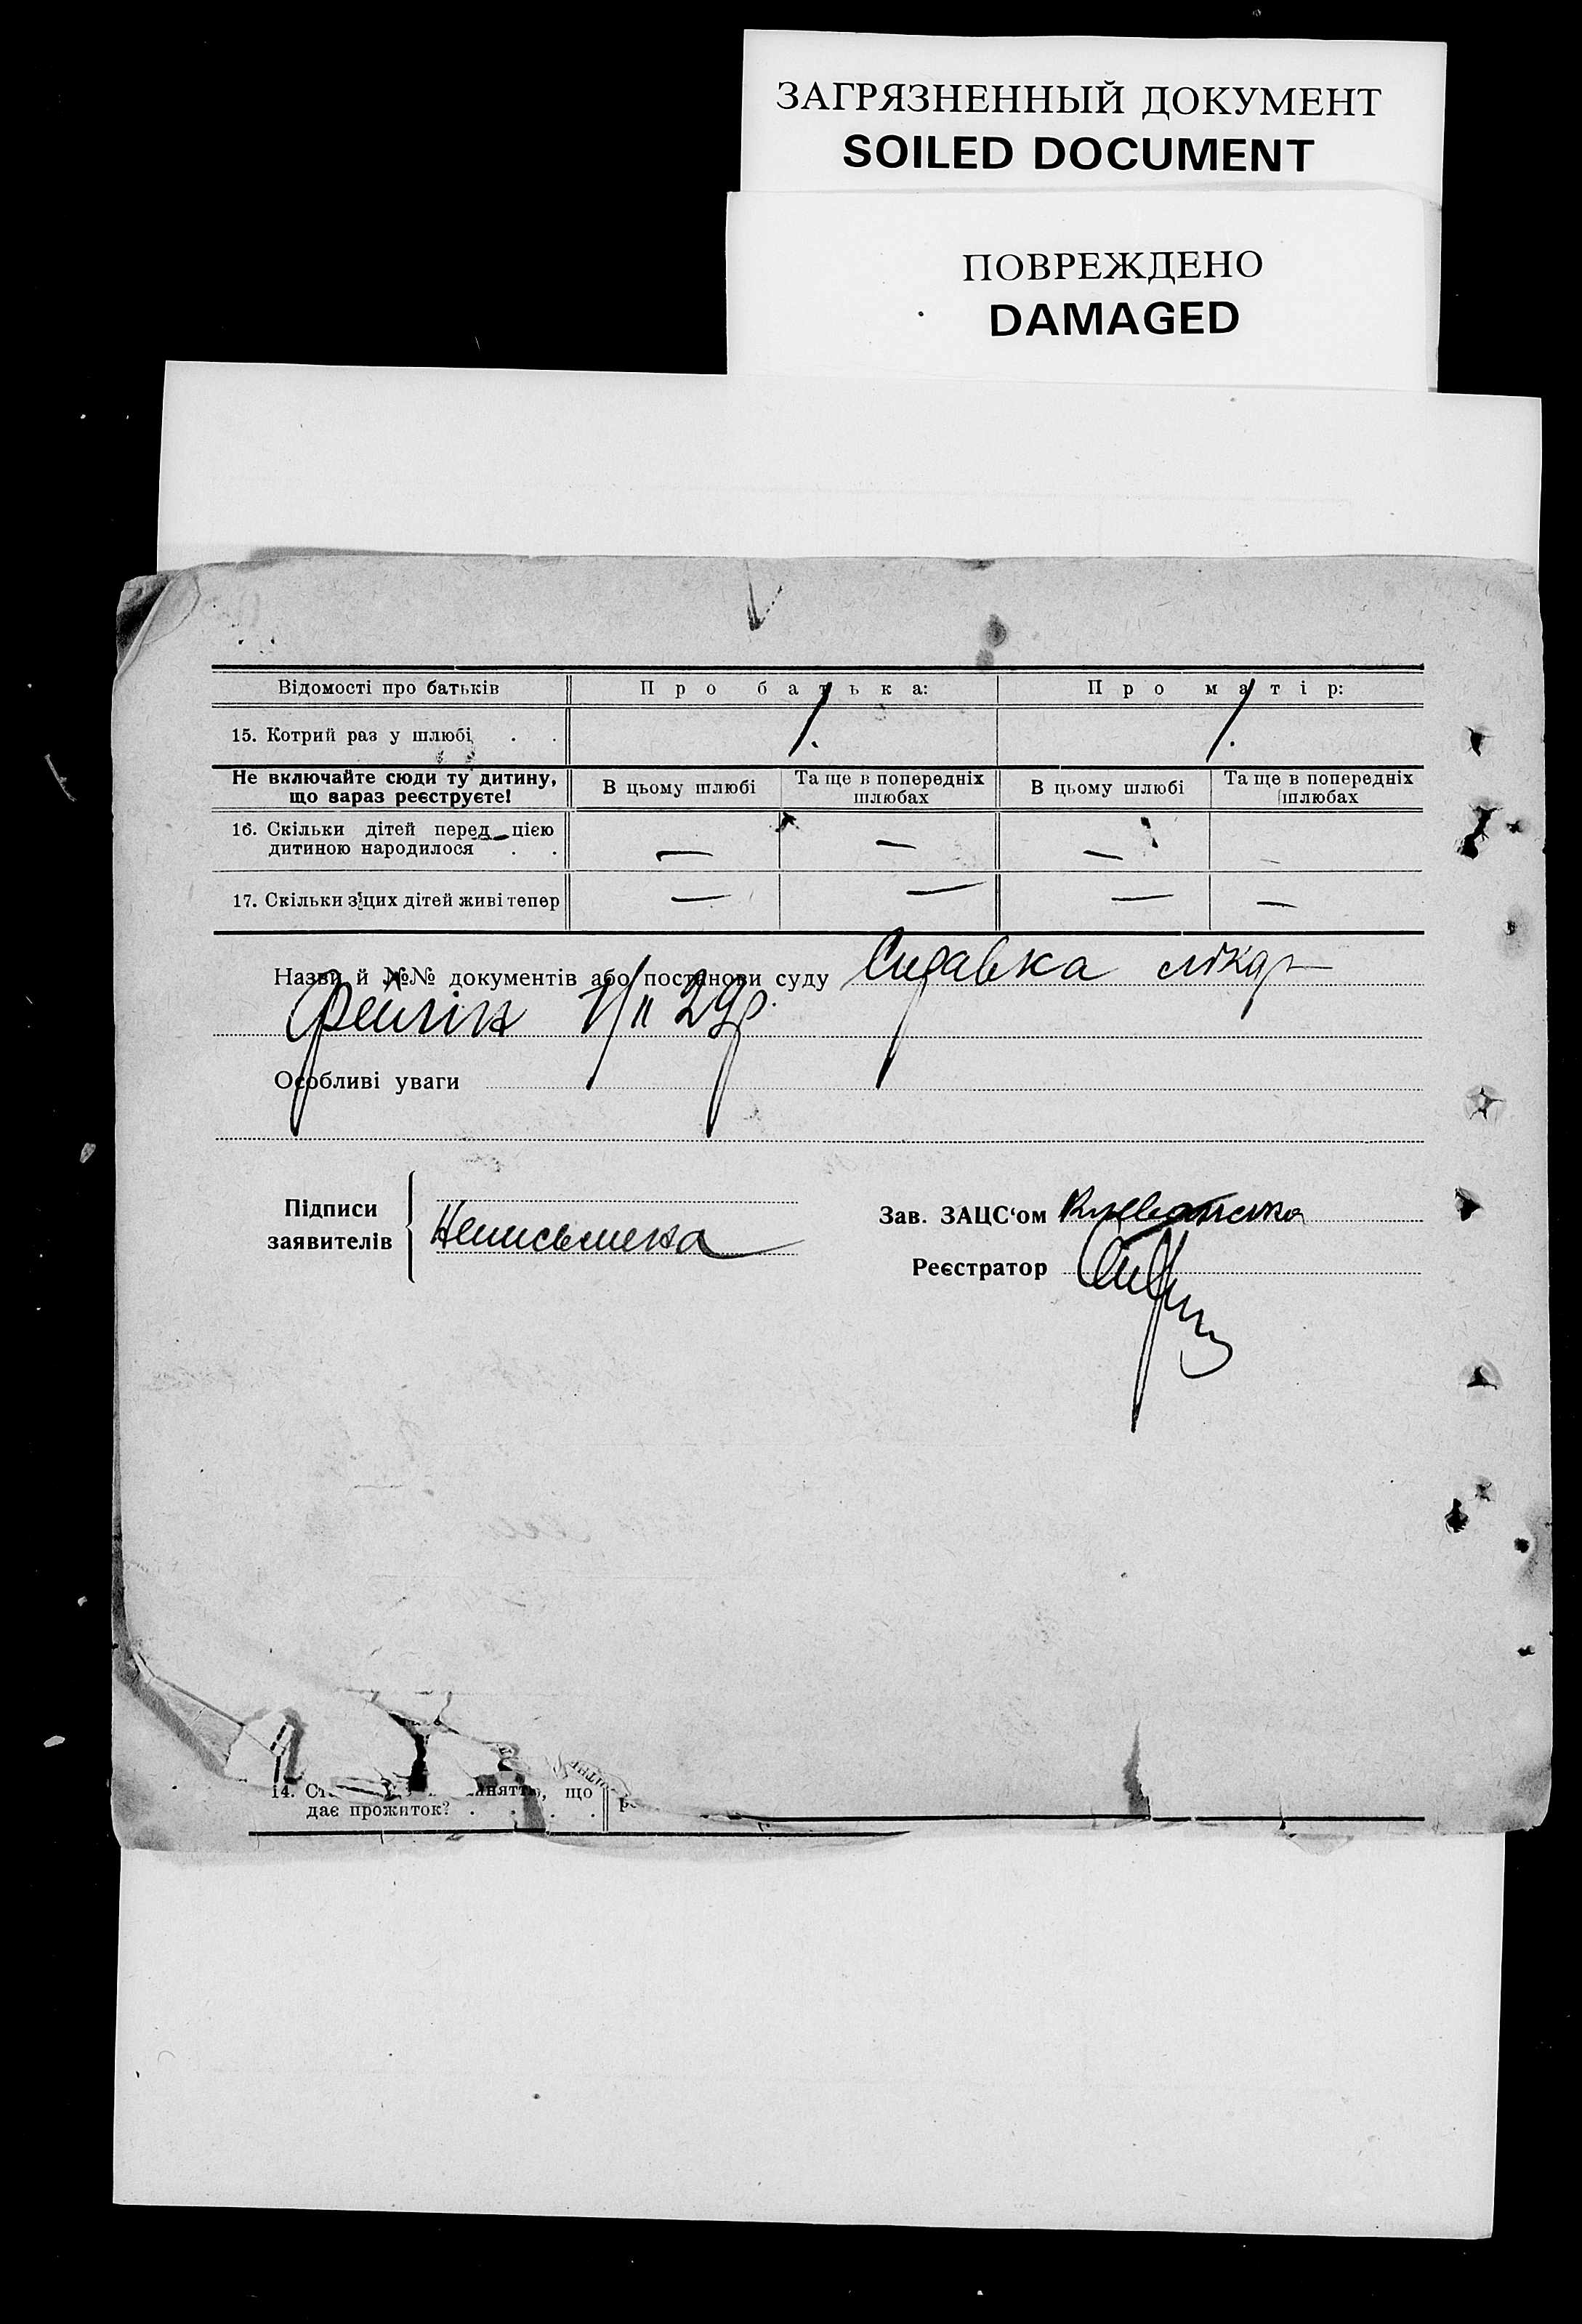 ЗАГРЯЗНЕННЫЙ ДОКУМЕНТ
SOILED DOCUMENT
ПОВРЕЖДЕНО
DAMAGED
Відомості про батьків Про батька: Про матір:
15. Котрий раз у шлюбі . . 1. 1.
Не включайте сюди ту дитину, що зараз реєструєте! В цьому шлюбі Та ще в попередніх шлюбах В цьому шлюбі Та ще в попередніх шлюбах
16. Скільки дітей перед цією
дитиною народилося . . — — — —
17. Скільки з цих дітей живі тепер — — — —
Назви й №№ документів або постанови суду Справка лікар
1/II 29р.
Особливі уваги
Підписи
заявителів Неписьмена
Зав. ЗАЦС‘ом
Реєстратор
14. що
дає прожиток? . . . .